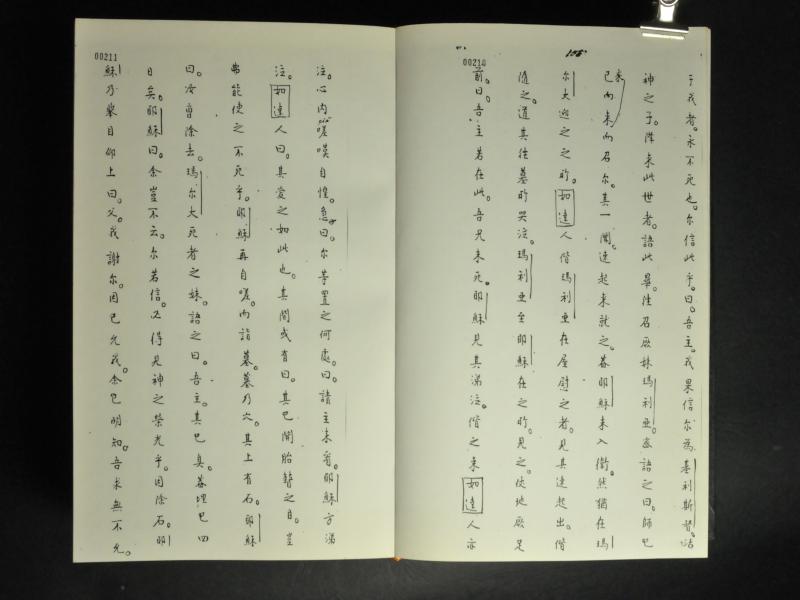 00210
于我者。永不死也。尔信此乎。曰。吾主。我果信尔為基利斯督。活
神之子。降来此世者。語此畢。往召厥妹瑪利亞。密語之曰。師已
来而召尔。其一聞。速起来就之。蓋耶穌未入衢。然猶在瑪
尔大迎之之所。如達人偕瑪利亞在屋慰之者。見其速起出。偕
隨之。道其往墓所哭泣。瑪利亞至耶穌在之所。見之。伏地厥足
前。曰。吾主若在此。吾兄未死。耶穌見其涕泣。偕之来如達人亦
00211
泣。心内嗟嘆自惶。曰。尔等置之何處。曰。請主来看。耶穌方涕
泣。如達人曰。其愛之如此也。其間或有曰。其已開胎瞽之目。豈
弗能使之不死乎。耶穌再自嗟。而詣墓。墓乃穴。其上有石。耶穌
曰。汝曹除去。瑪尔大死者之妹。語之曰。吾主。其已臭。蓋埋已四
日矣。耶穌曰。余豈不云。尔若信。必得見神之榮光乎。因除石。耶
穌乃舉目仰上曰。父。我謝尔。因已允我。余已明知。吾求無不允。